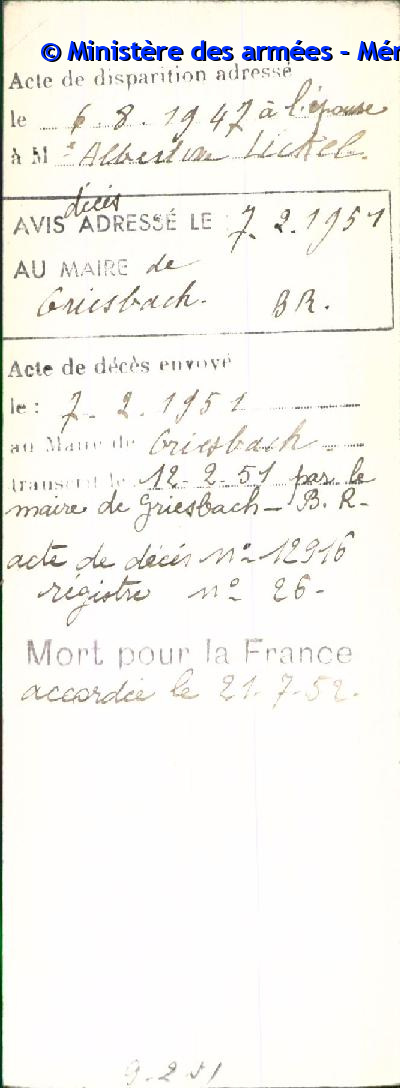 © Ministère des armées - Mém
Acte de disparition adressé
le 6. 8. 1947 à l'épouse
à Mme Lickel.
décès
AVIS ADRESSÉ LE : 7. 2. 1951
AU MAIRE de
Griesbach. BR.
Acte de décès envoyé
le : 7. 2. 1951
au Maire de Griesbach
transcrit le 12-2-51 par le
maire de Griesbach - B. R-
acte de décès n° 12916
régistre n° 26-
Mort pour la France
accordée le 21-7-52.
9-2-51